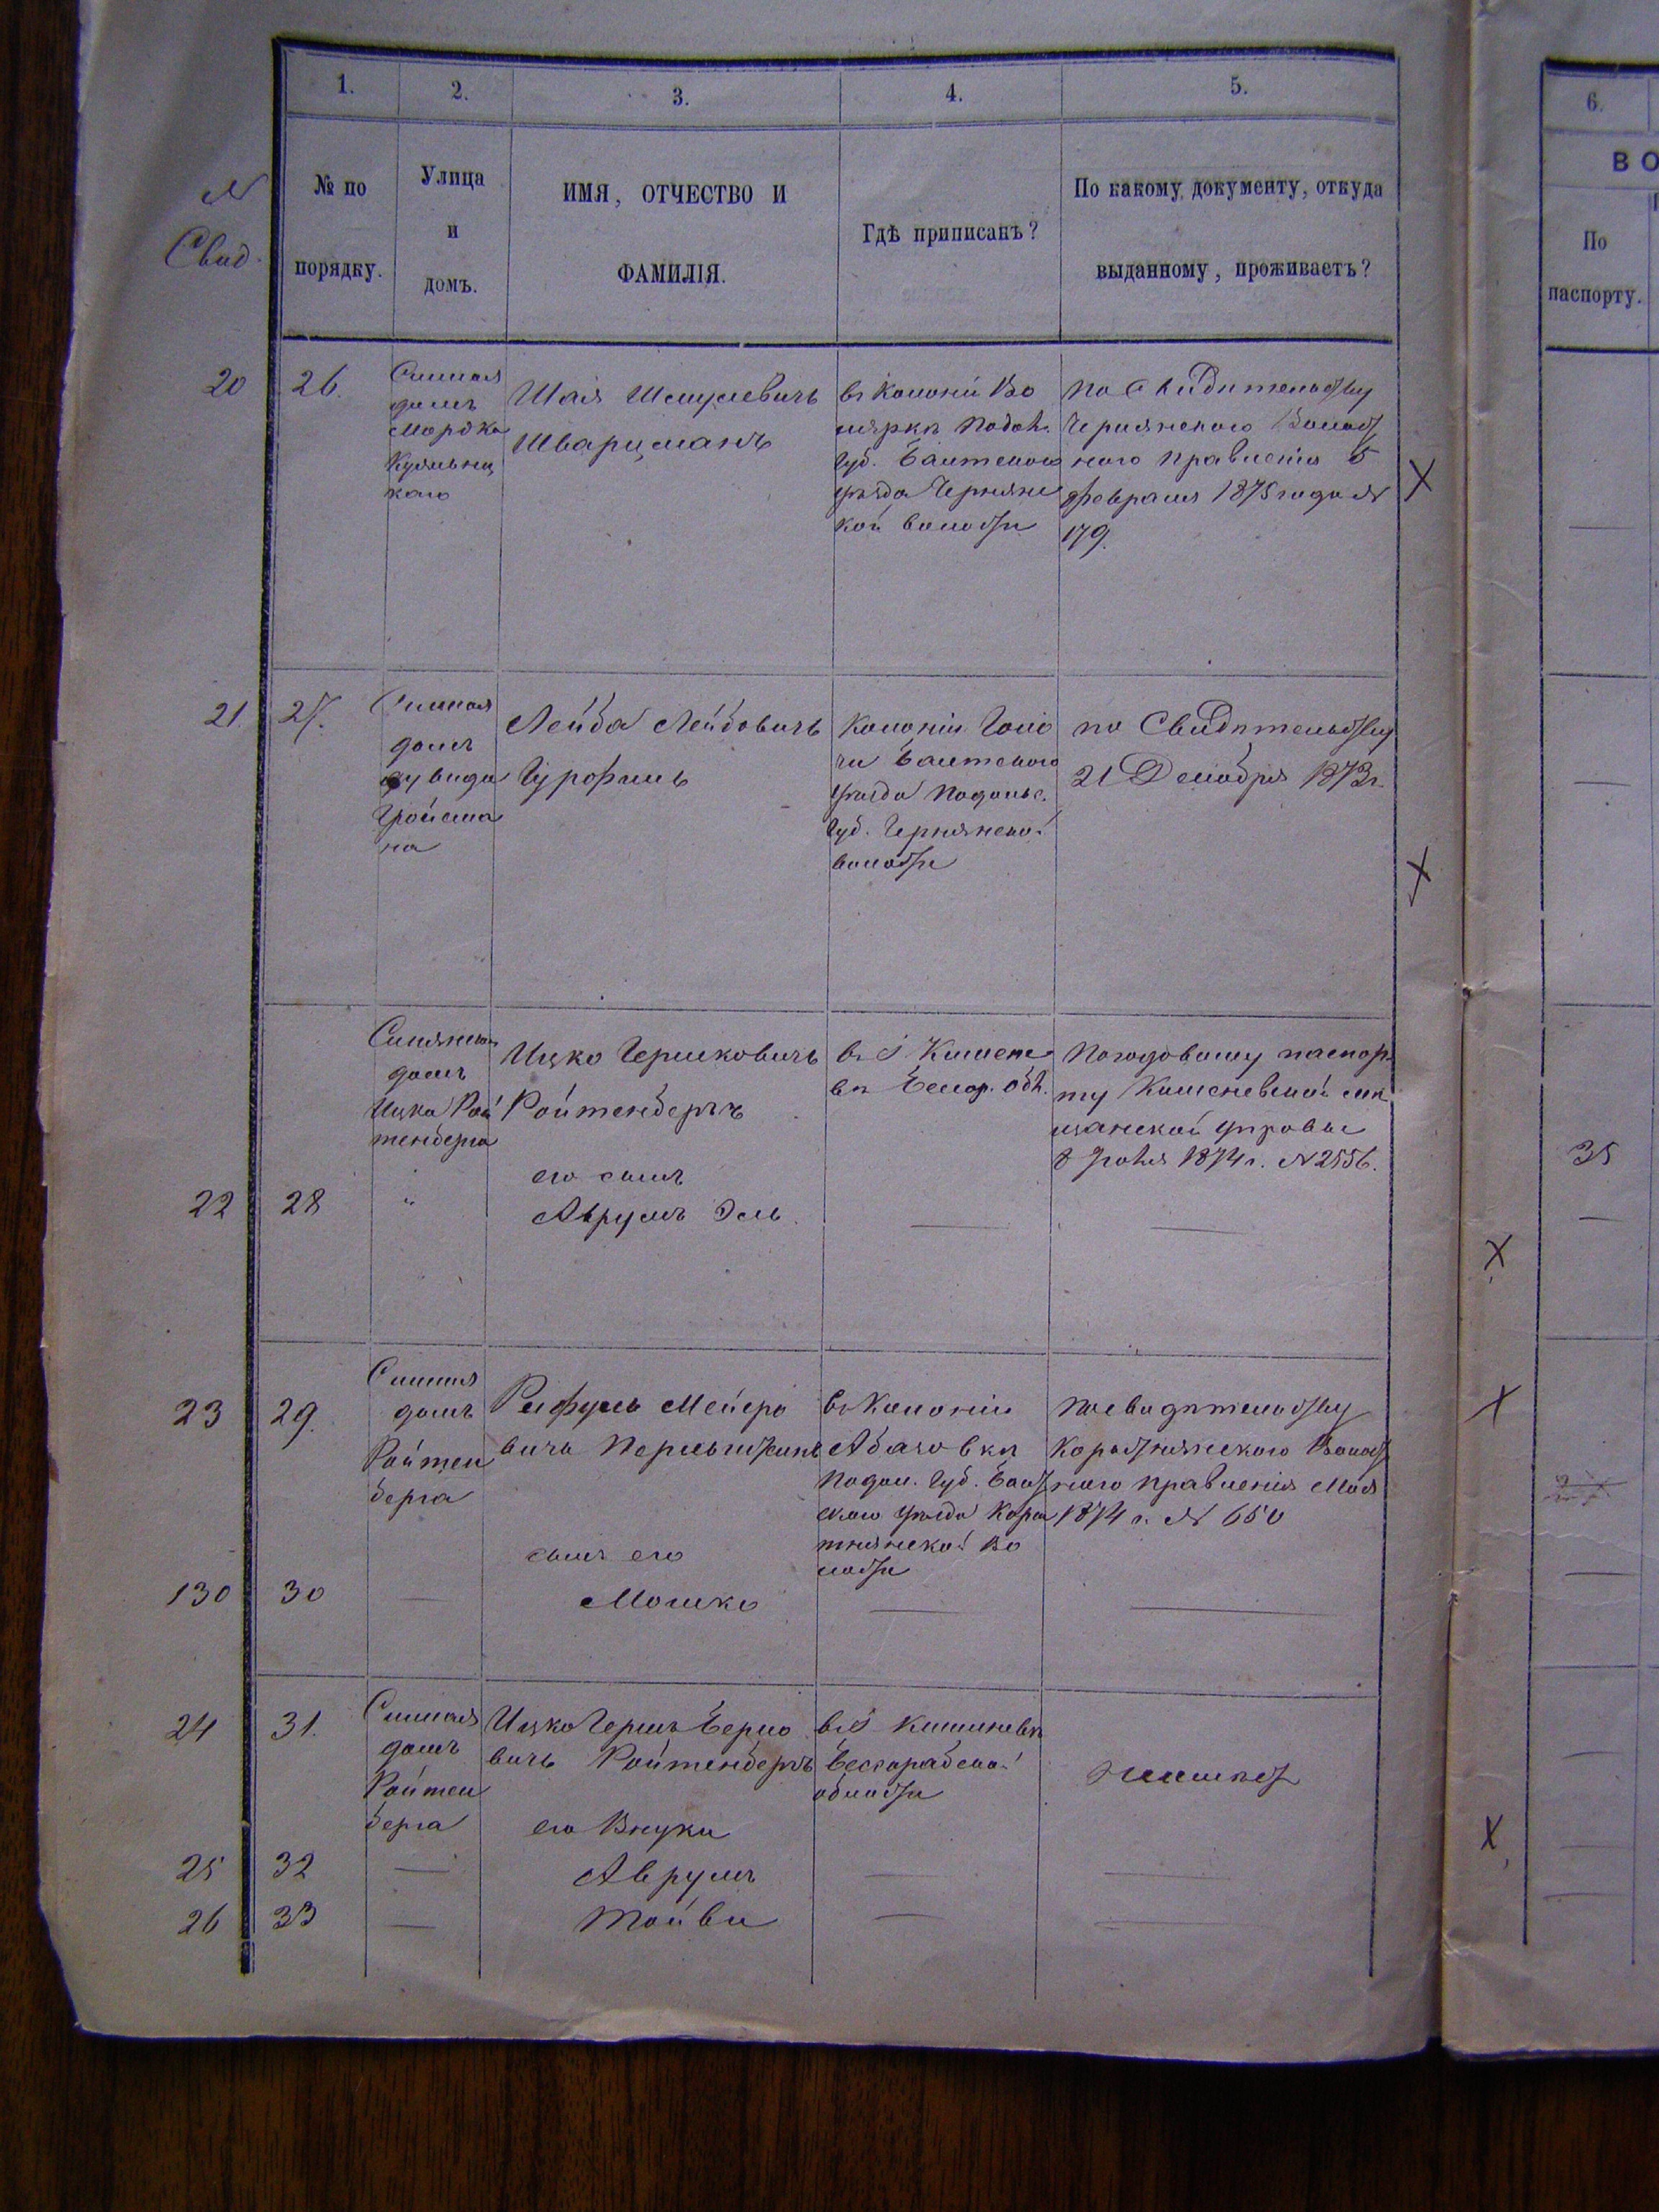 1.
2.
3.
4.
5.
6.
№
Свид.
№ по
порядку.
Улица
и
домъ.
ИМЯ, ОТЧЕСТВО И
ФАМИЛІЯ.
Гдѣ приписанъ?
По какому документу, откуда
выданному, проживаетъ?
ВО
По
паспорту.
20
26.
Сѣнная
домъ
Мордка
Куяльниц
каго
Шая Шмулевичъ
Шварцманъ
въ Колоніи Во
лярки Подол.
Губ. Балтскаго
уѣзда Чернян
кой волости
По Свидѣтельству
Чернянского Волост
ного Правленія 5
февраля 1875 года №
179.
X
21
27.
Сѣнная
домъ
Гройсма
на
Лейба Лейбовичъ
Гурофимъ
Колоніи
Балтского
уѣзда Подольс.
Губ. Чернянской
волости
по Свидѣтельству
21 Декабря 1873 г.
X
домъ
Ицка Рой
тенберга
Ицко Гершковичъ
Ройтенбергъ
въ г. Кишене
вѣ Бессар. обл.
По годовому паспор
ту Кишеневской мѣ
щанской управы
8 Іюля 1874 г. № 2556.
35
22
28
"
его сынъ
Аврумъ Эль
X
23
29.
Сѣнная
домъ
Ройтен
берга
Рефулъ Мейеро
вичъ
въ Колоніи
Абазовкѣ
Подол. Губ. Балт
скаго уѣзда Коро
тнянской Во
лости
По свидѣтельству
Коротнянского Волост
ного Правленія Мая
1874 г. № 650
X
130
30
сынъ его
Мошко
24
31.
Сѣнная
домъ
Ройтен
берга
Ицко Гершъ Берко
вичъ Ройтенбергъ
въ г. Кишиневѣ
Бессарабской
области
его Внуки
X
25
32
Аврумъ
26
33
Тойви